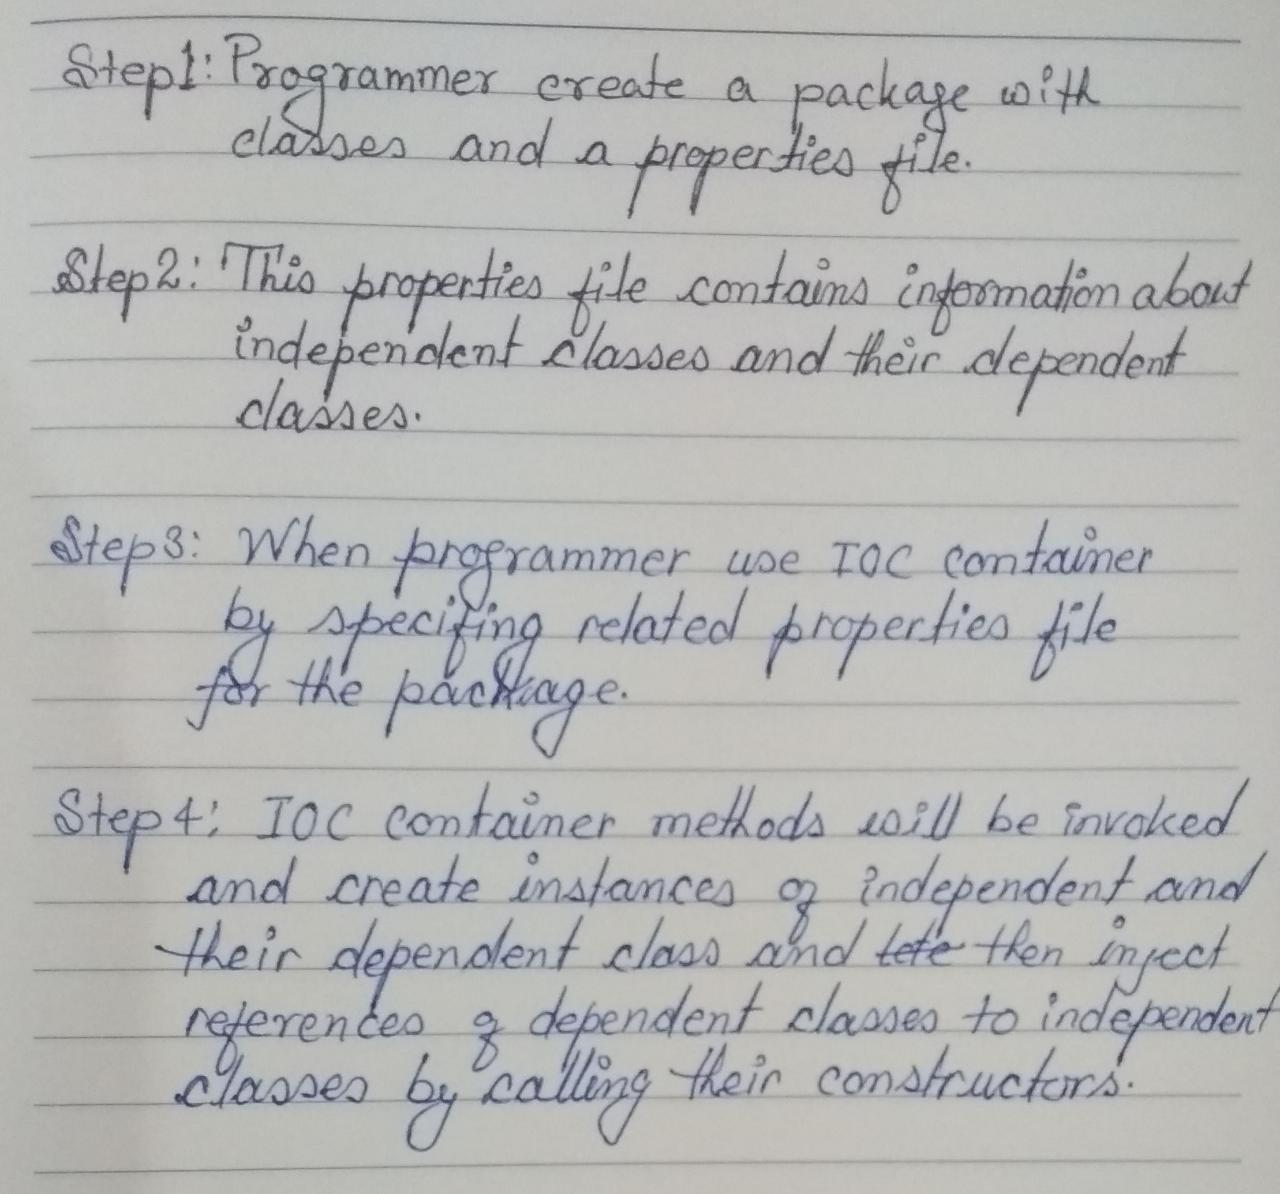 Step1: Programmer create a package with
classes and a properties file.
Step2: This properties file contains information about
independent classes and their dependent
classes.
Step3: When programmer use IOC container
by specifing related properties file
for the package.
Step4: IOC container methods will be invoked
and create instances of independent and
their dependent class and then inject
references of dependent classes to independent
classes by calling their constructors.